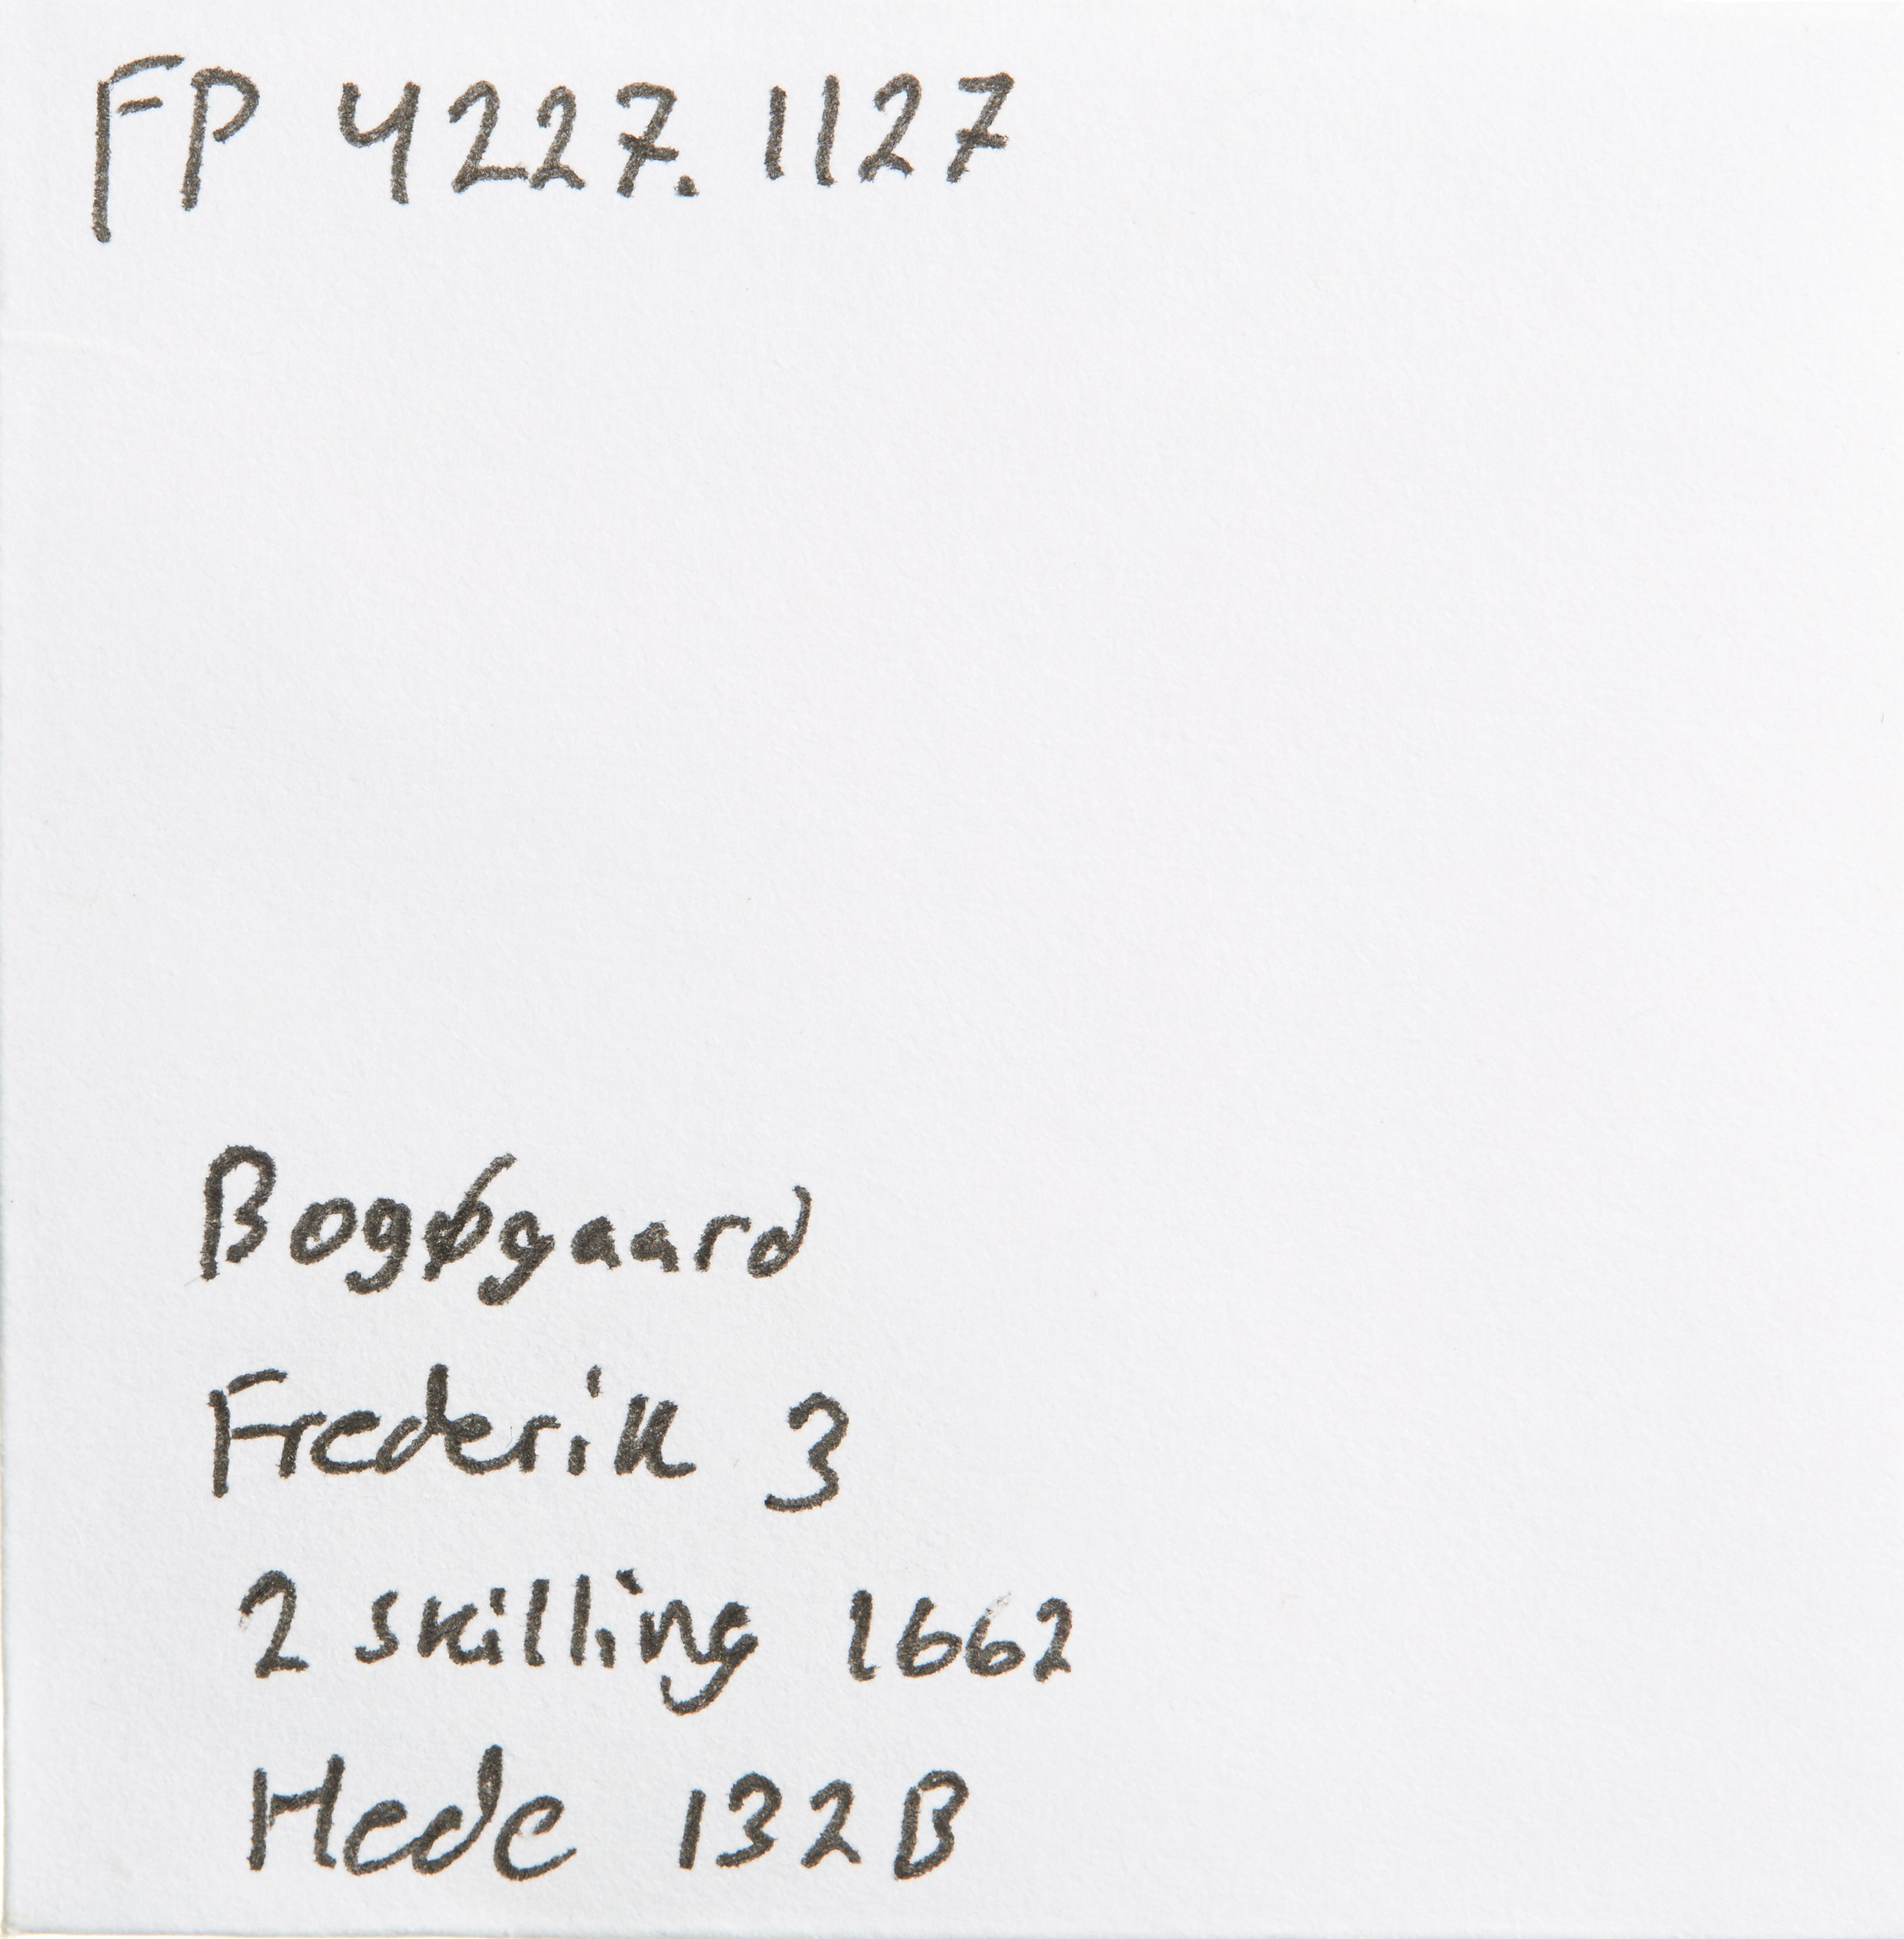 FP 4227.1127
Bogøgaard
Frederik 3
2 skilling 1662
Hede 132B